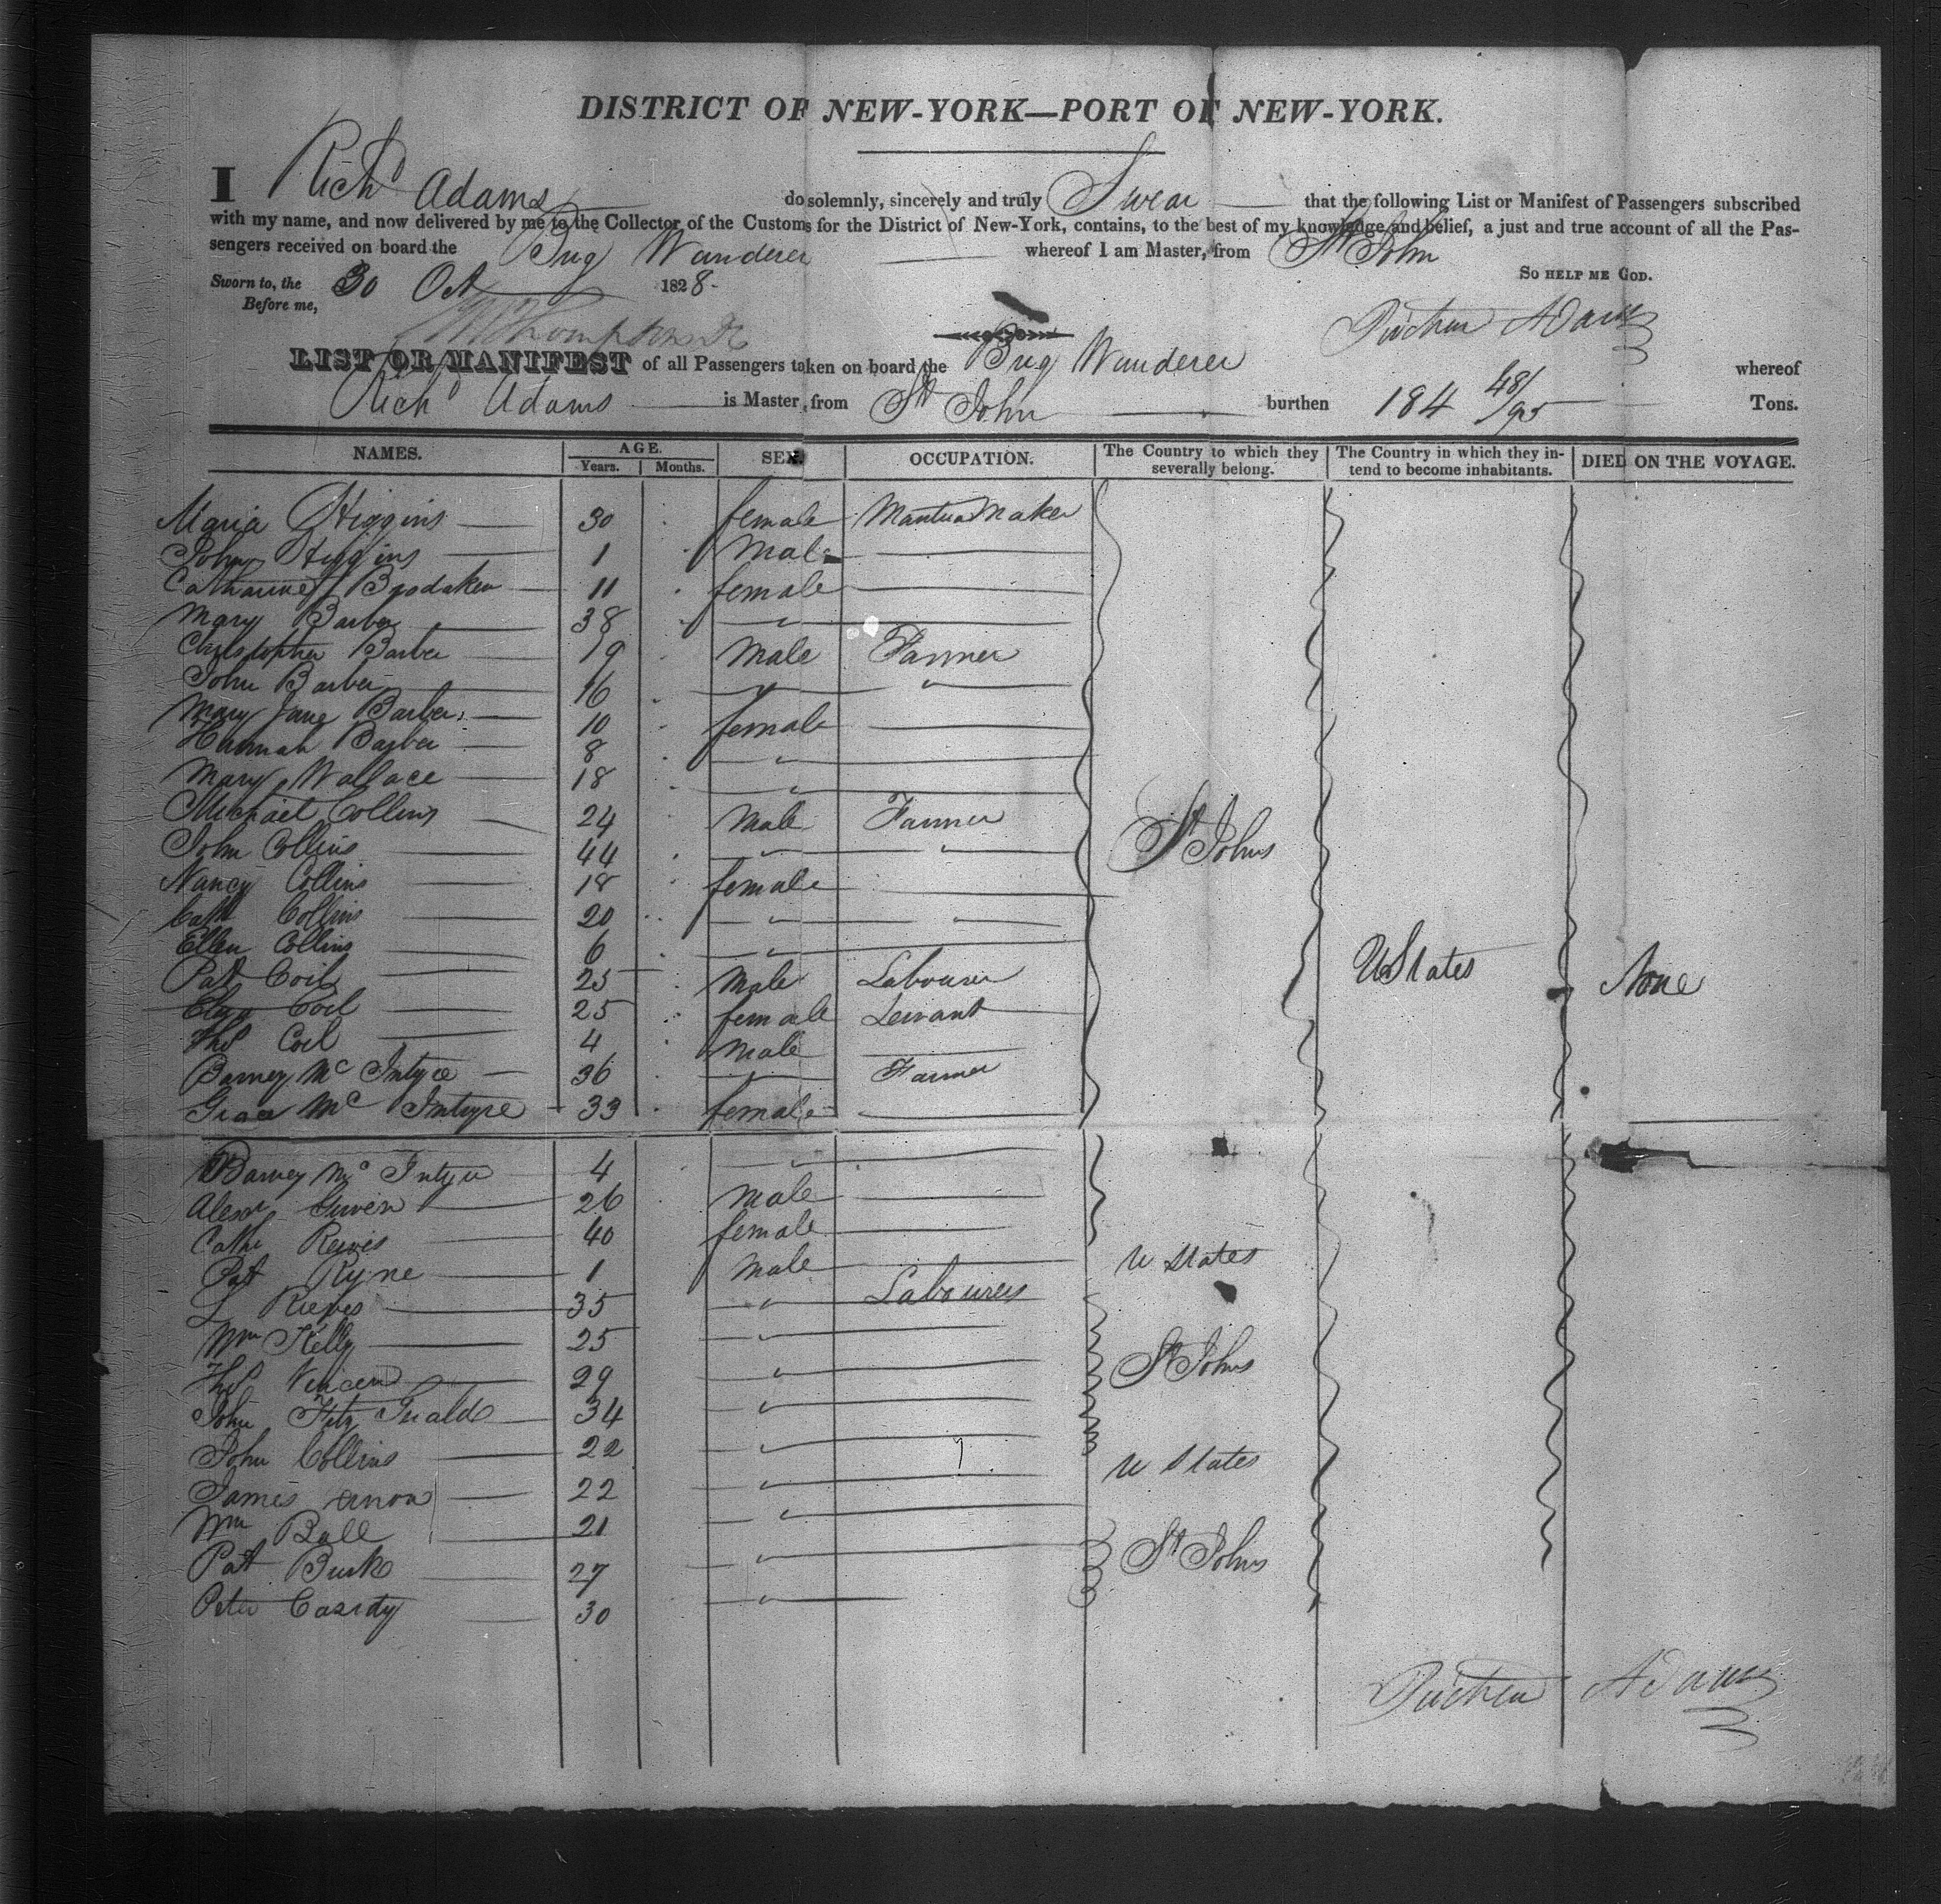 DISTRICT OF NEW-YORK—PORT OF NEW-YORK.
I Richd Adams do solemnly, sincerely and truly Swear that the following List or Manifest of Passengers subscribed
with my name, and now delivered by me to the Collector of the Customs for the District of New-York, contains, to the best of my knowledge and belief, a just and true account of all the Pas-
sengers received on board the Brig Wanderer whereof I am Master, from St John
So HELP ME GOD.
Sworn to, the 30 Oct 1828.
Before me,
Adams
LIST OR MANIFEST of all Passengers taken on board the Brig Wanderer whereof
Richd Adams is Master, from St John burthen 184 48/95 Tons.
NAMES. AGE. Years. Months. SEX. OCCUPATION. The Country to which they severally belong. The Country in which they intend to become inhabitants. DIED ON THE VOYAGE.
Maria Higgins 30 female Mantua Maker
John Higgins 1 Male
Catharine Brodaken 11 female
Mary Barber 38 "
Christopher Barber 19 Male Farmer
John Barber 16 " "
Mary Jane Barber 10 female
Hannah Barber 8 "
Mary Wallace 18 "
Michael Collins 24 Male Farmer
John Collins 44 " " St Johns
Nancy Collins 18 female
Cath Collins 20 " "
Ellen Collins 6 "
Pat Coil 25 Male Labourer U States None
Coil 25 female Servant
Ths Coil 4 Male
Barney Mc Intyre 36 " Farmer
Grace Mc Intyre 33 female
Barney Mc Intyre 4 "
Alexr 26 Male
Cathe Reeves 40 female
Pat Ryne 1 Male U States
Reeves 35 " Labourers
Wm Kelly 25 "
Ths 29 " St Johns
John Fitz Gerald 34 "
John Collins 22 "
James 22 " U States
Wm Ball 21 "
Pat Burk 27 " St Johns
Peter Casidy 30 "
Adams